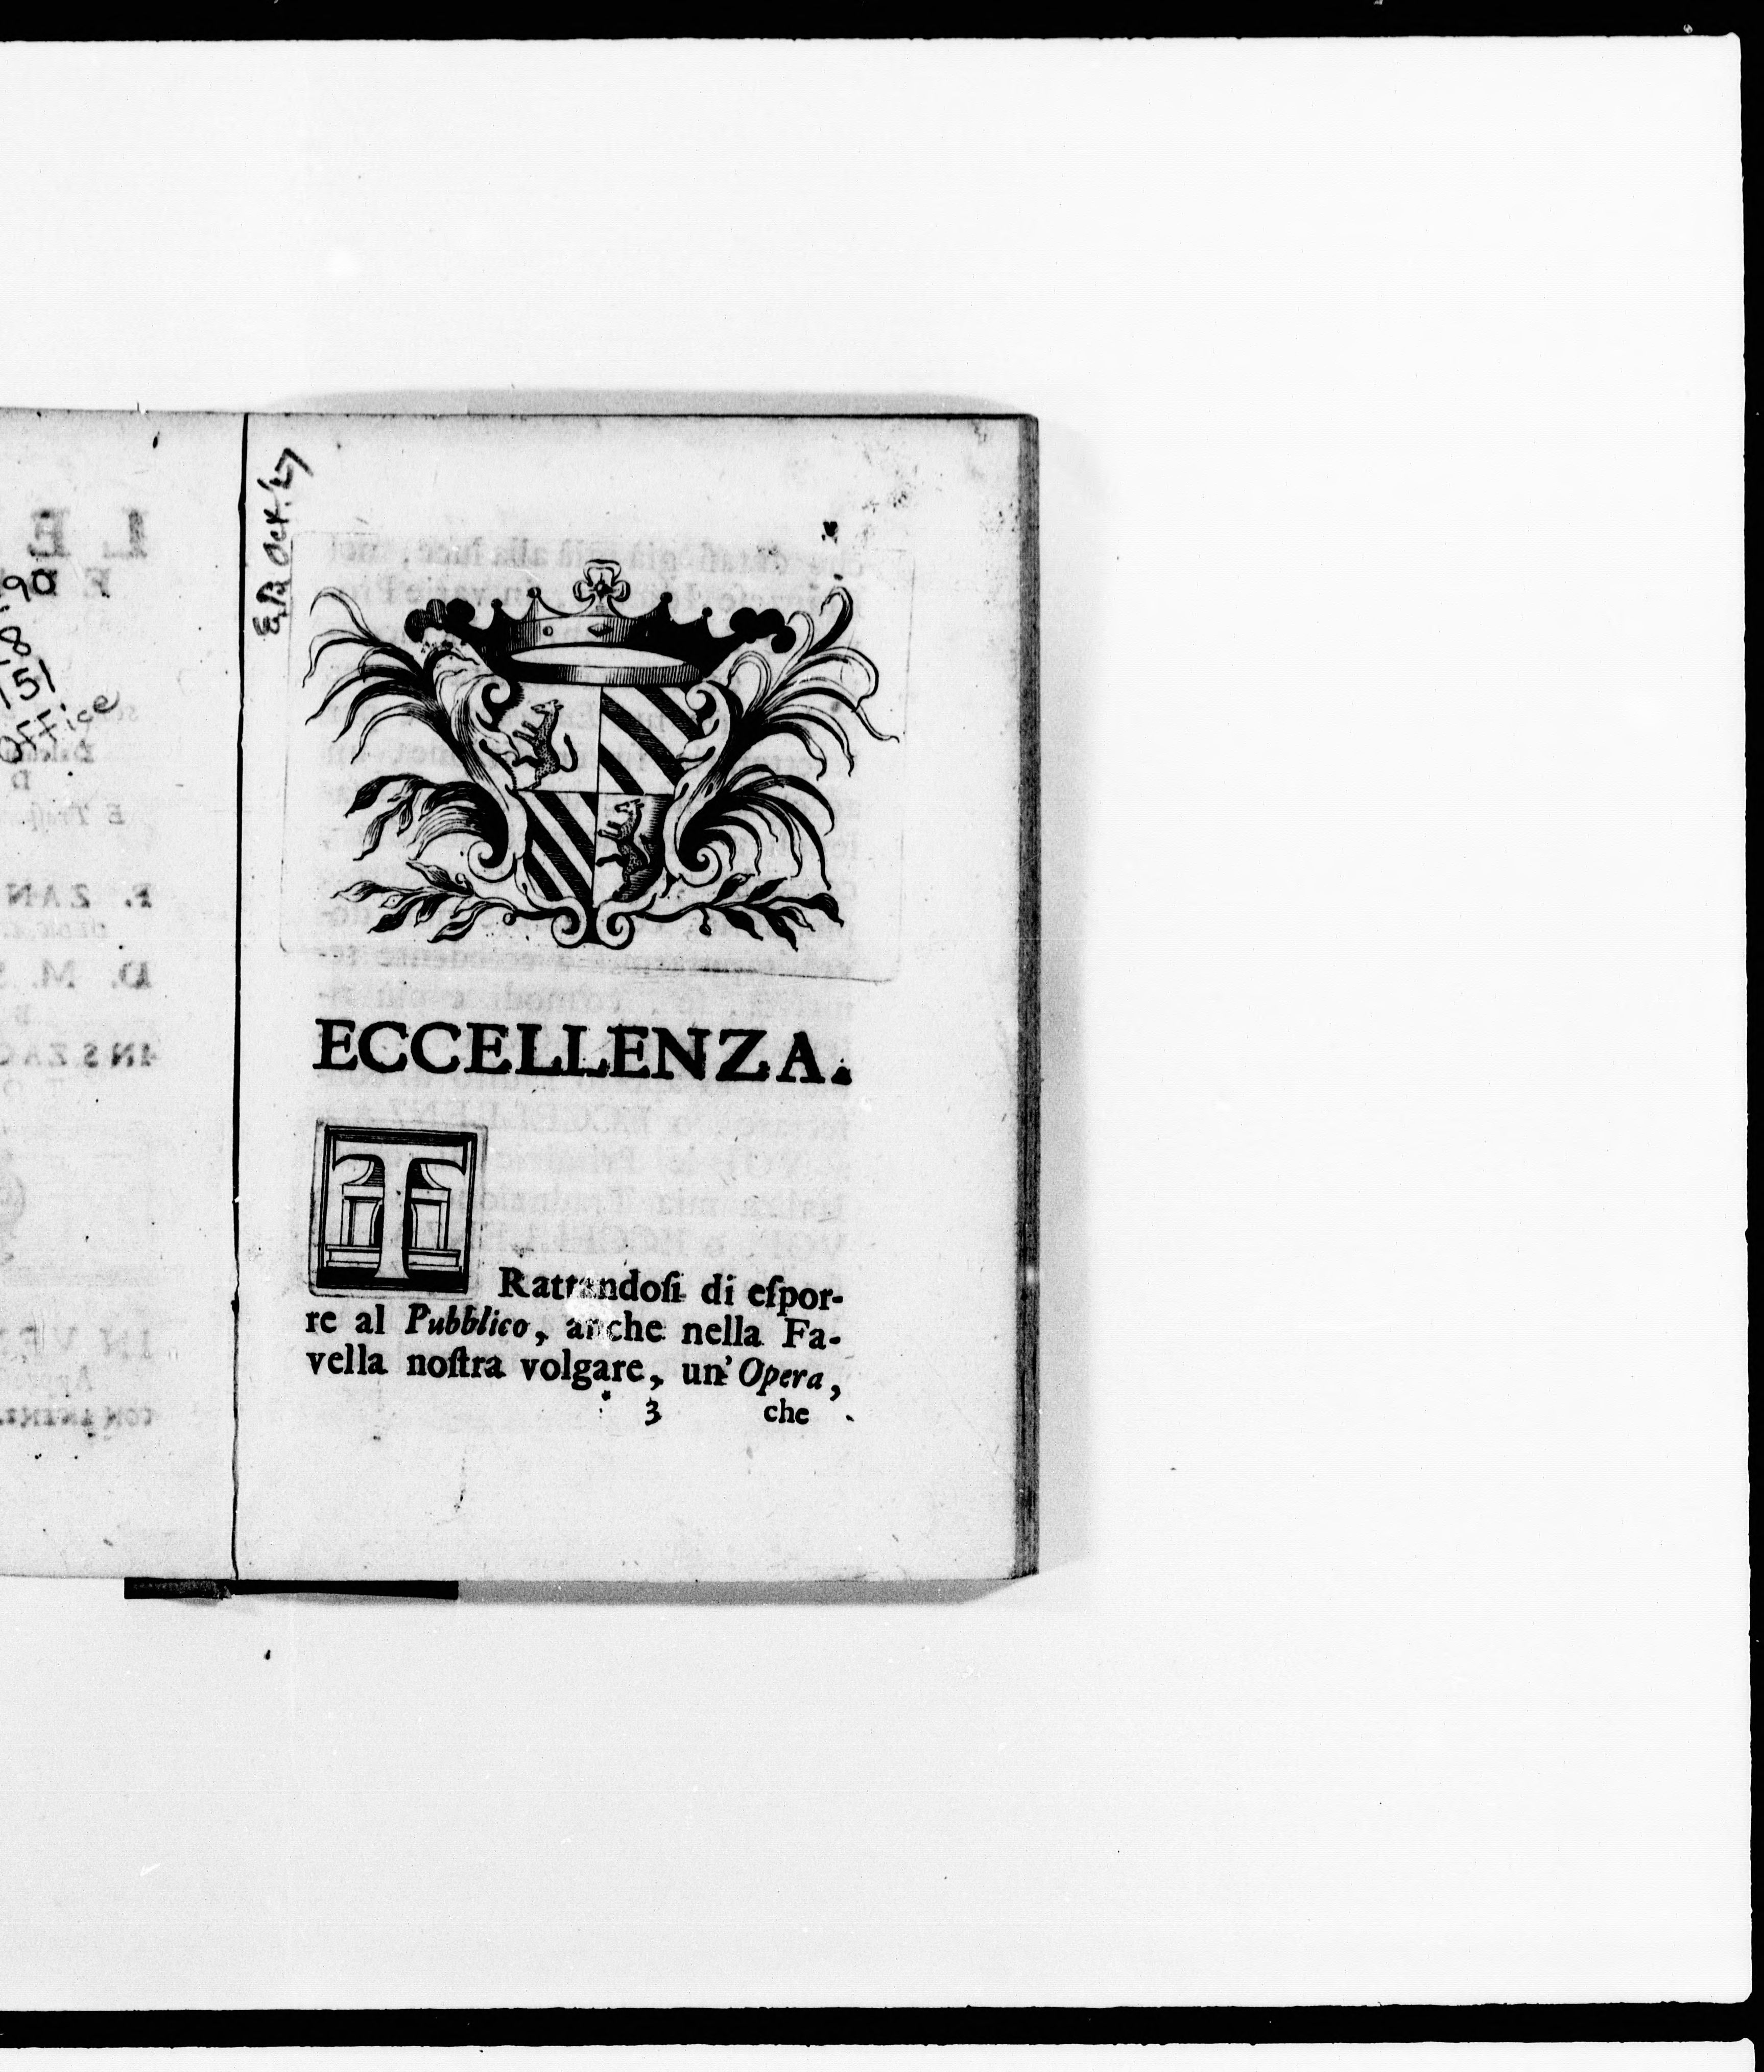 90
8
151
OFFice
Oct. 27
ECCELLENZA.
TRattandoſi di eſpor-
re al Pubblico, anche nella Fa-
vella noſtra volgare, un' Opera,
* 3 che